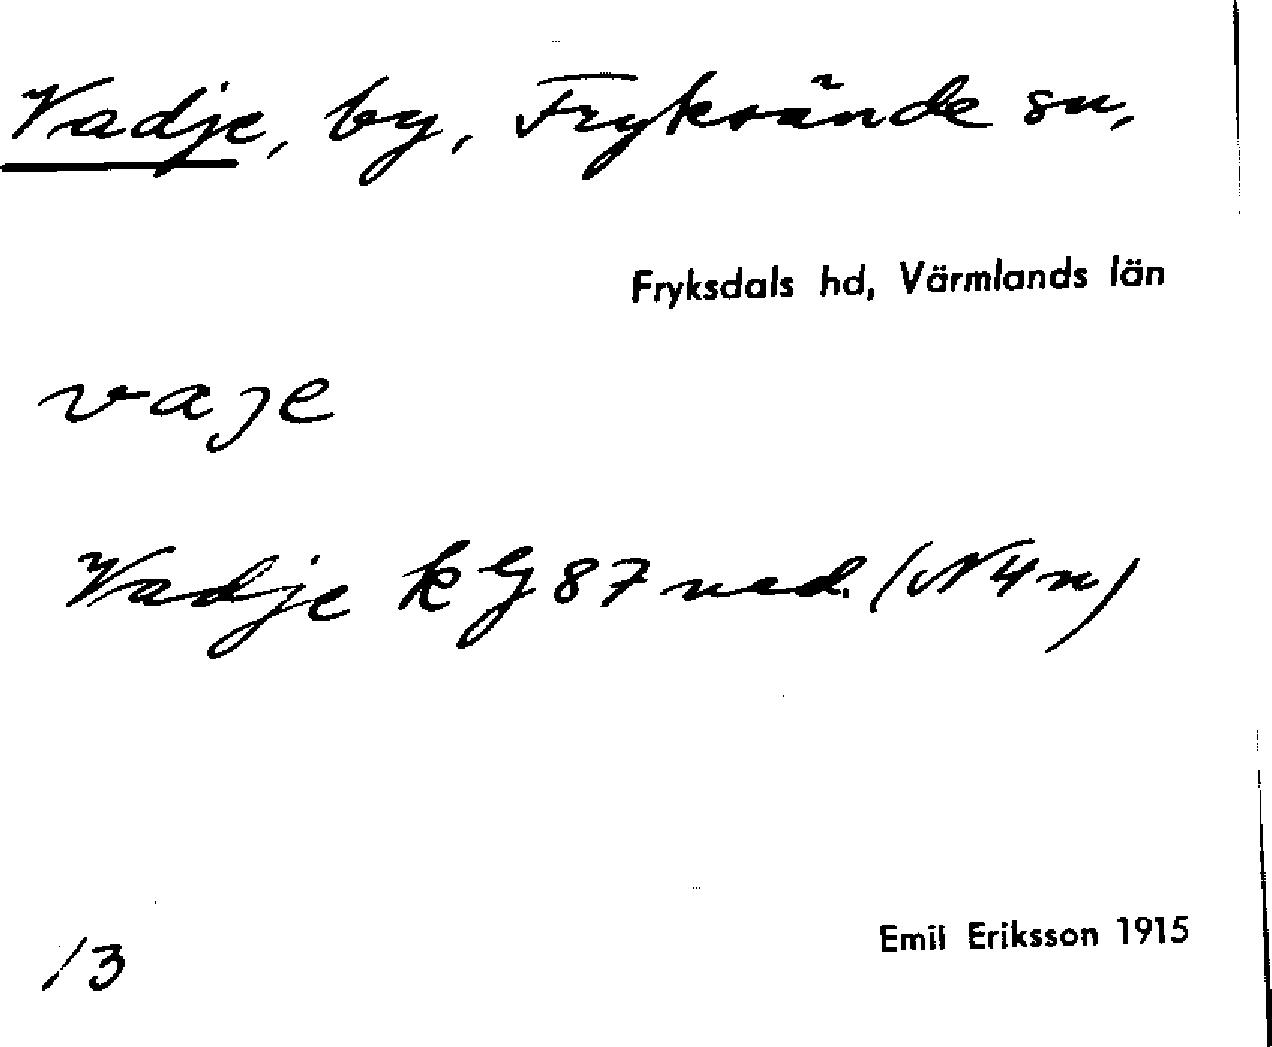 Vadje, by, Fryksände sn,
Fryksdals hd, Värmlands län
vaje
Vadje k G 87 ned. (N4n)
13
Emil Eriksson 1915